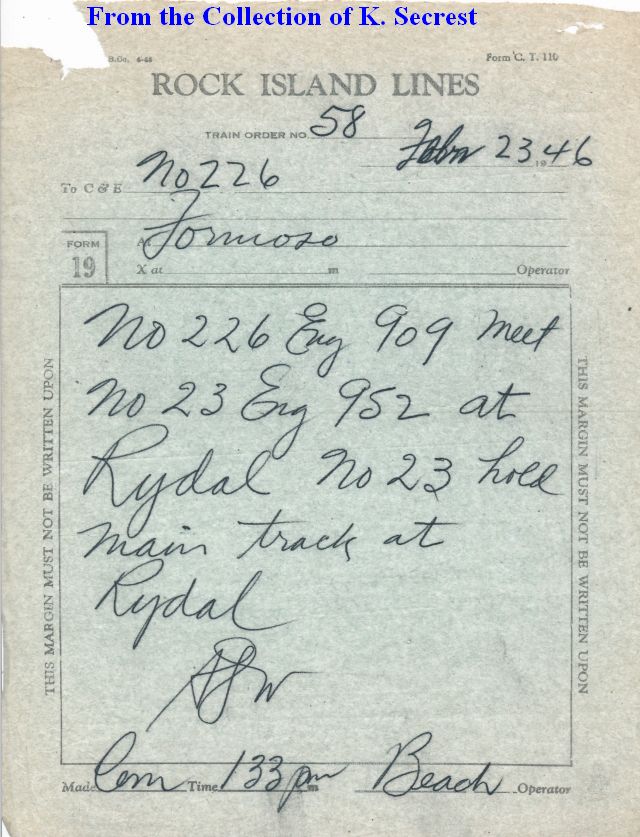 From the Collection of K. Secrest
B.Co. 4-45 Form C. T. 110
ROCK ISLAND LINES
TRAIN ORDER NO. 58
Febr 23 1946
To C & E No 226
At Formoso
X at m Operator
FORM
19
No 226 Eng 909 meet
No 23 Eng 952 at
Rydal No 23 hold
main track at
Rydal
Made Com Time 133 pm m Beach Operator
THIS MARGIN MUST NOT BE WRITTEN UPON
THIS MARGIN MUST NOT BE WRITTEN UPON